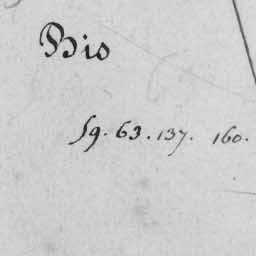 Bis
59. 63. 137. 160.